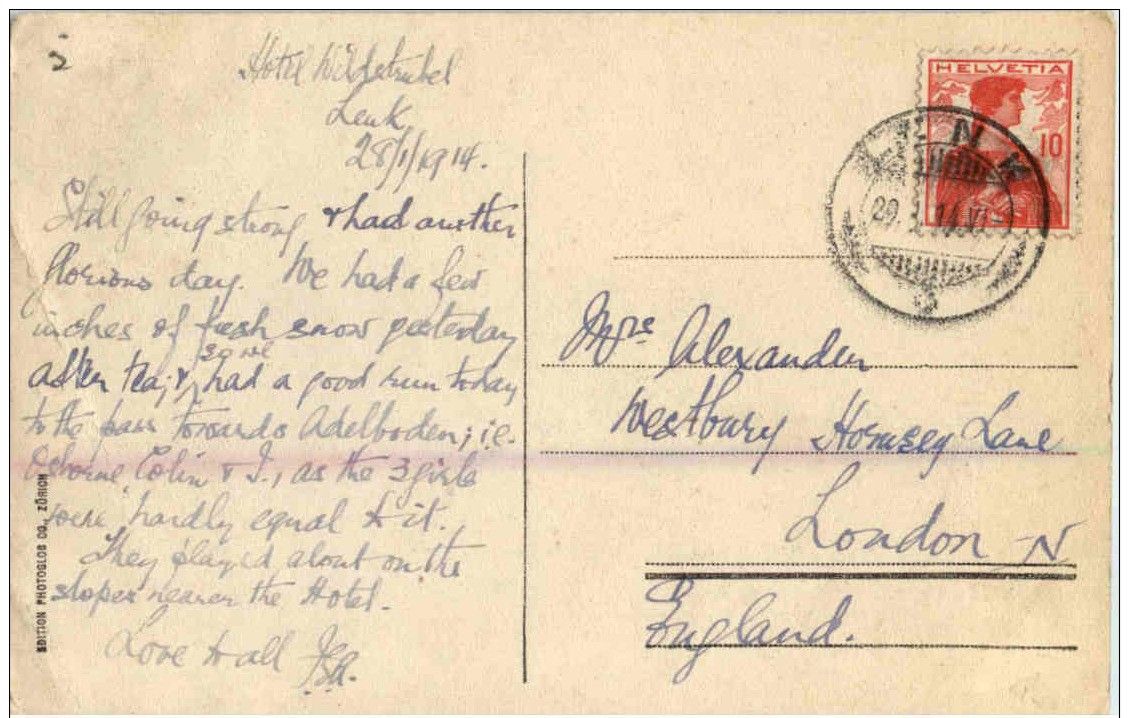 Hotel Wildstrubel
Lenk
28/1/1914.
Still going strong & had another
glorious day. We had a few
inches of fresh snow yesterday
after tea; &
so we
had a good run today
to the pass towards Adelboden; i.e.
Osborne, Colin & I, as the 3 girls
were hardly equal to it.
They played about on the
slopes nearer the Hotel.
Love to all
EDITION PHOTOGLOB CO., ZÜRICH
HELVETIA
10
LENK
Mrs Alexander
Westbury Hornsey Lane
London N
England.